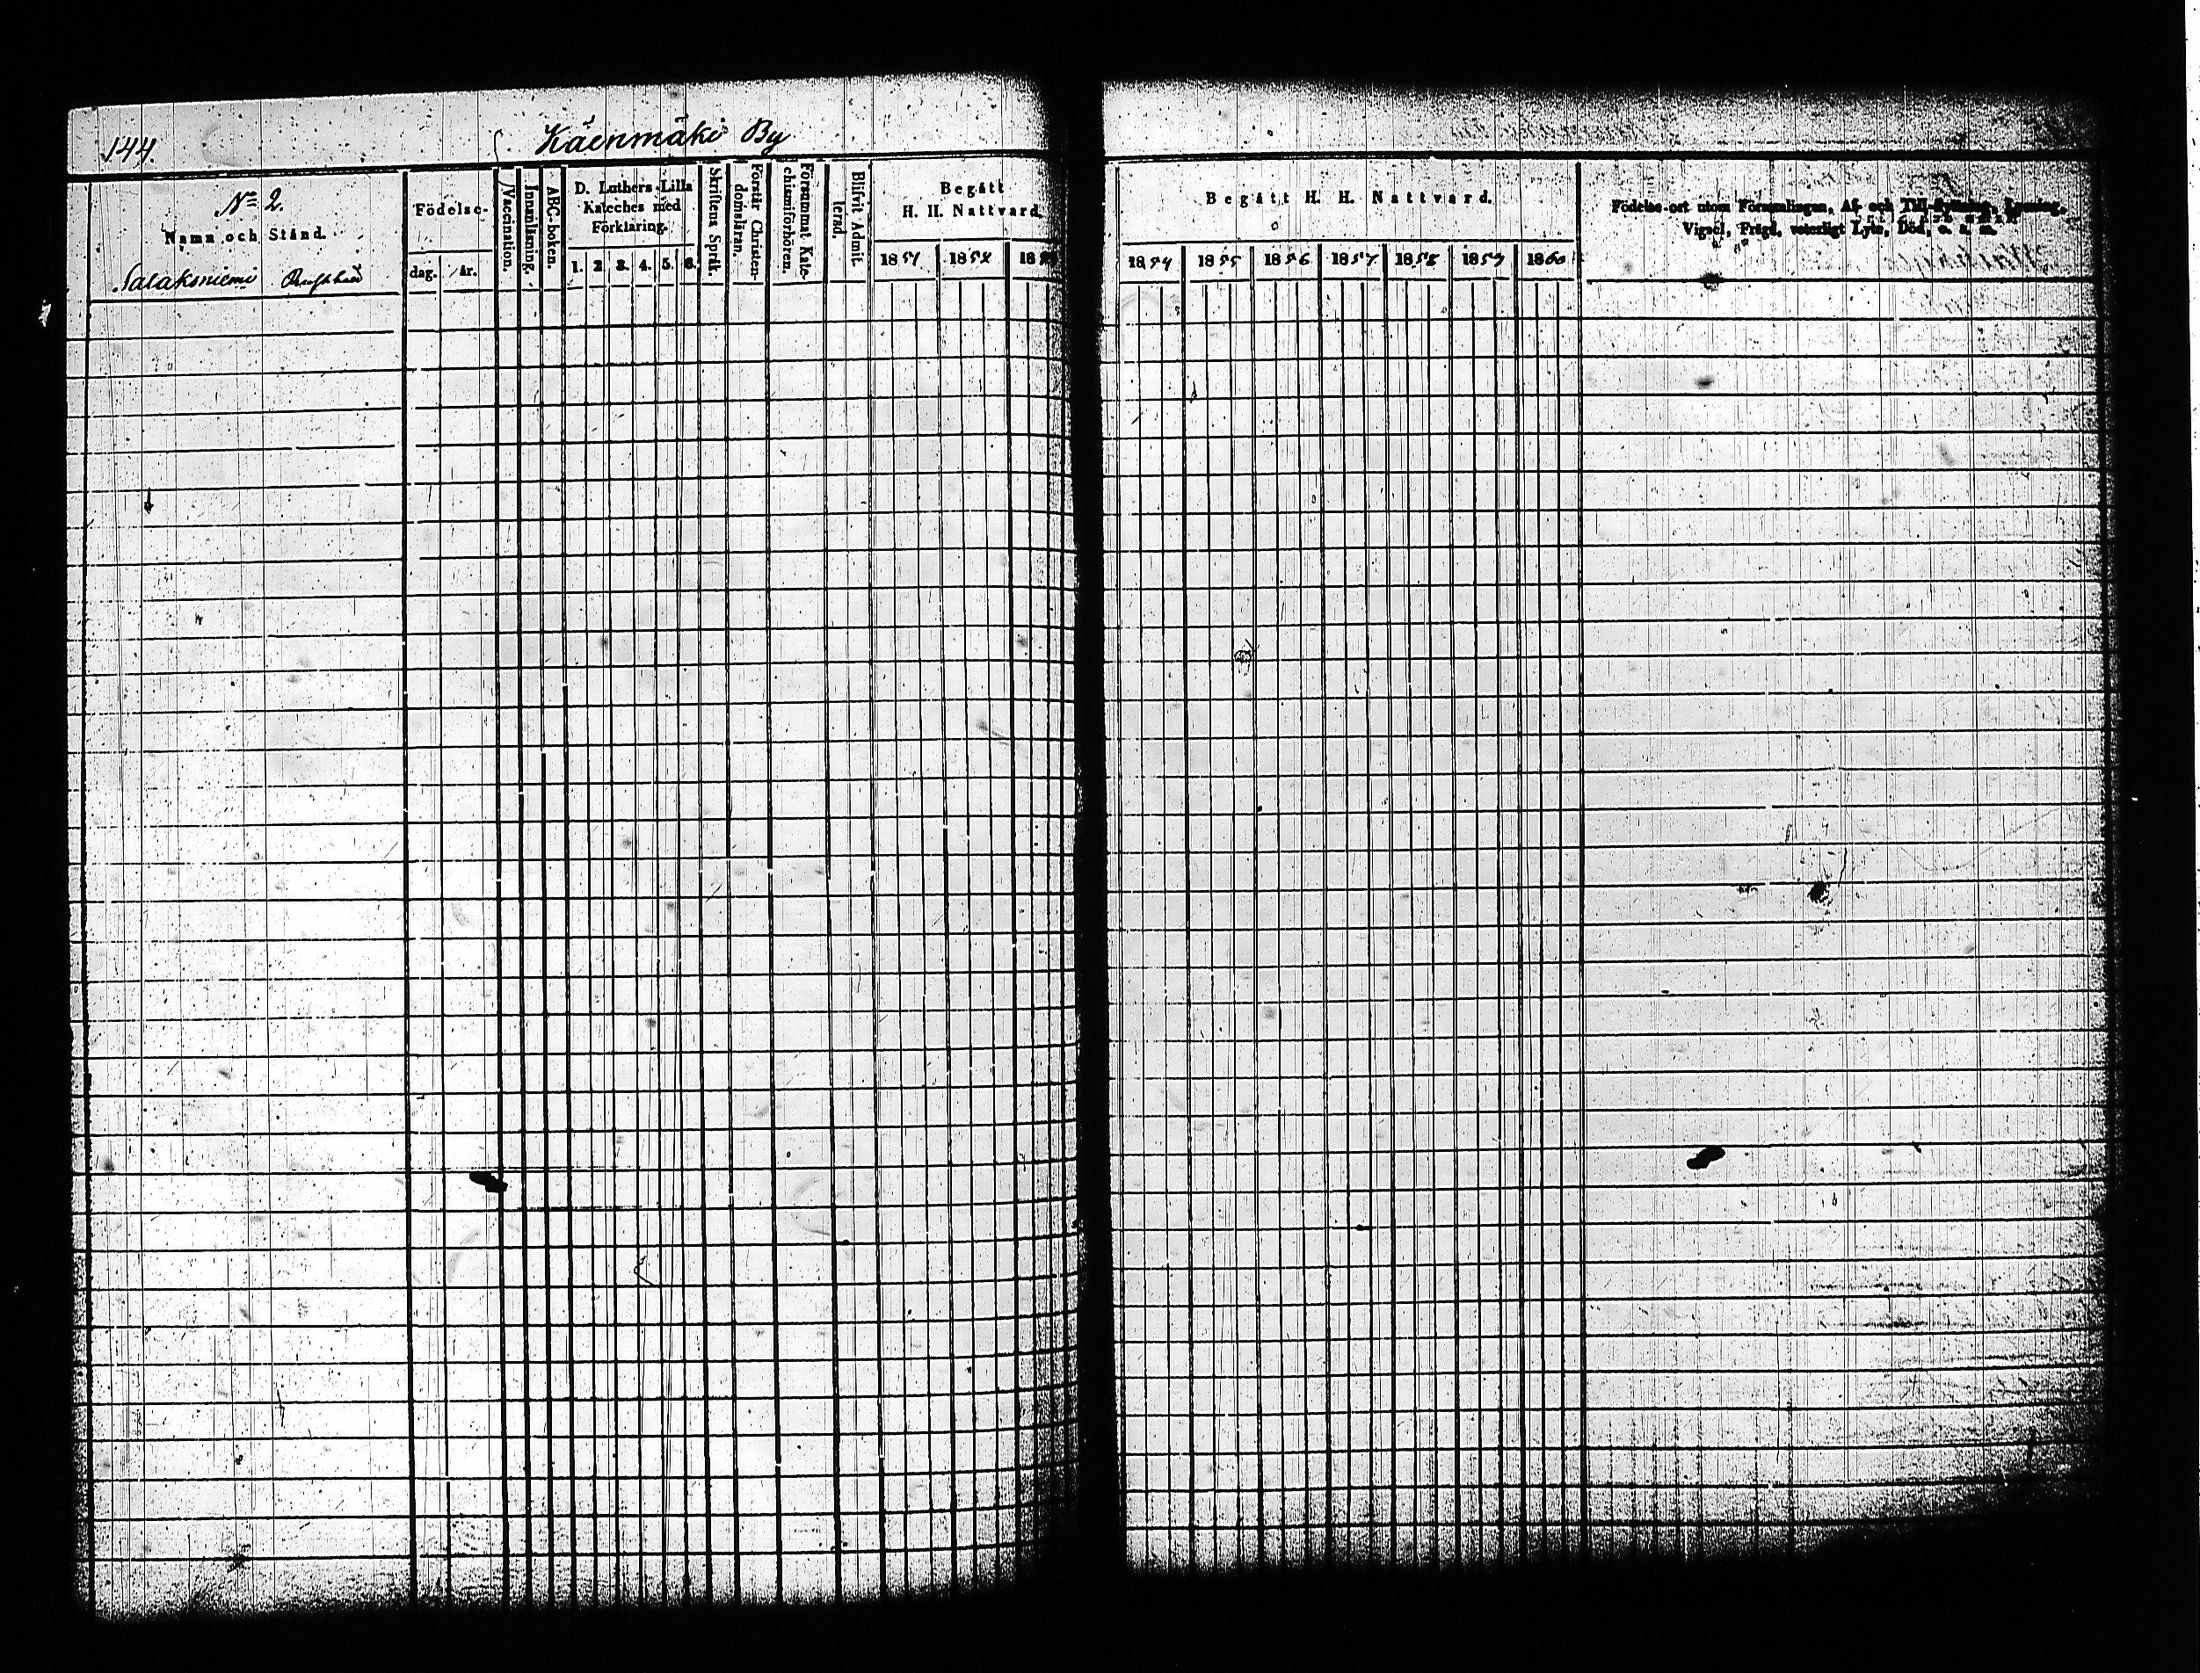 144.
Käenmäki By
No 2.
Namn och Stånd.
Salaksniemi
Födelse-
dag. år.
Vaccination.
Innanläsning.
ABC-boken.
D. Luthers Lilla
Kateches med
Förklaring.
1. 2. 3. 4. 5. 6.
Skriftens Språk.
Förstår Christen-
domsläran.
Försummat Kate-
chismiförhören.
Blifvit Admit-
terad.
Begått
H. H. Nattvard.
1851 1852 185
Begått H. H. Nattvard.
1854 1855 1856 1857 1858 1859 1860
Födelse-ort utom Församlingen, Af- och Till-flyttning, Lysning,
Vigsel, Frägd, veterligt Lyte, Död, o. s. m.